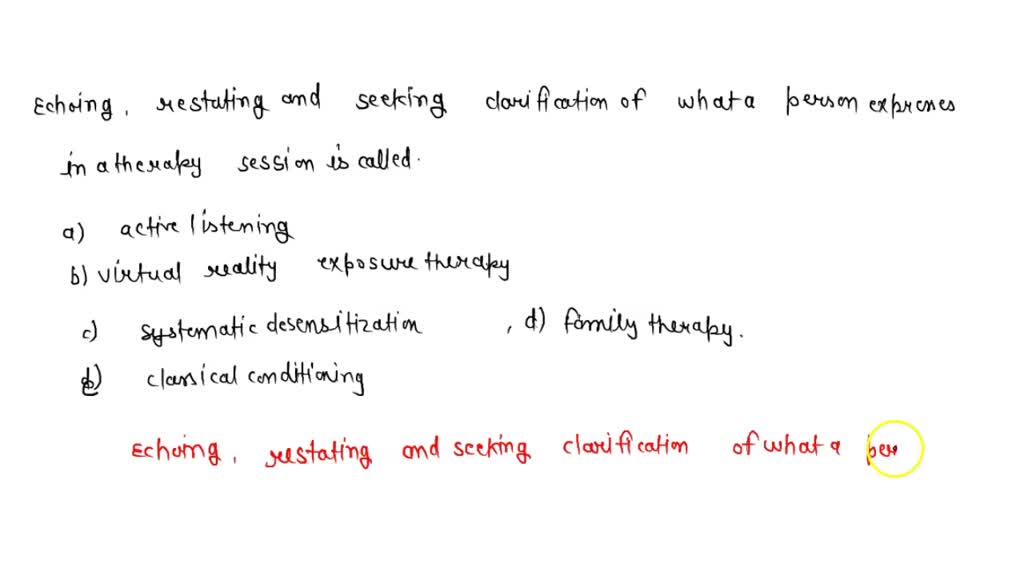 Echoing, restating and seeking clarification of what a person expresses
in a therapy session is called.
a) active listening
b) virtual reality exposure therapy
c) systematic desensitization , d) family therapy.
classical conditioning
Echoing, restating and seeking clarification of what a per